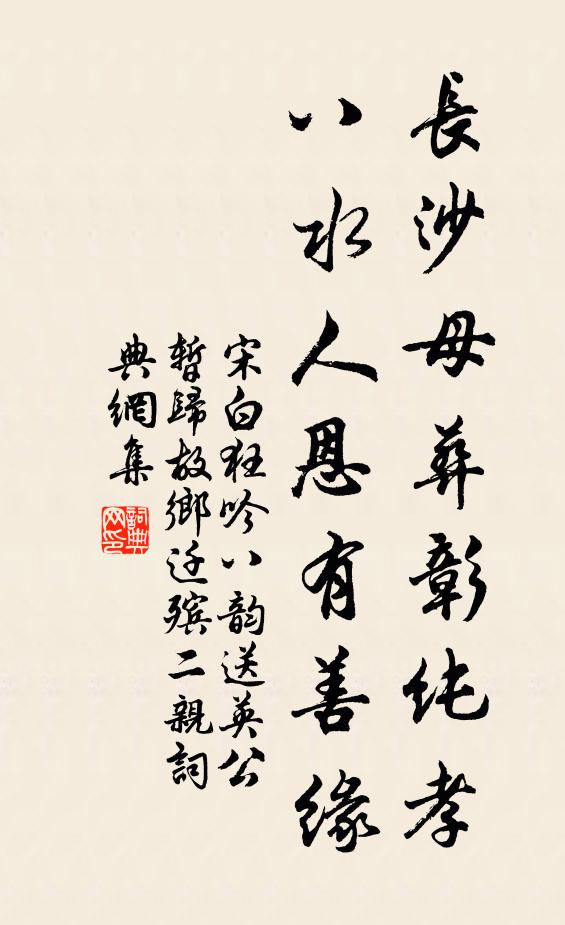 長沙母葬彰純孝
八水人恩有善緣
宋白狂吟八韵送英公
暫歸故鄉迁殯二親詞
典網集
詞典网印